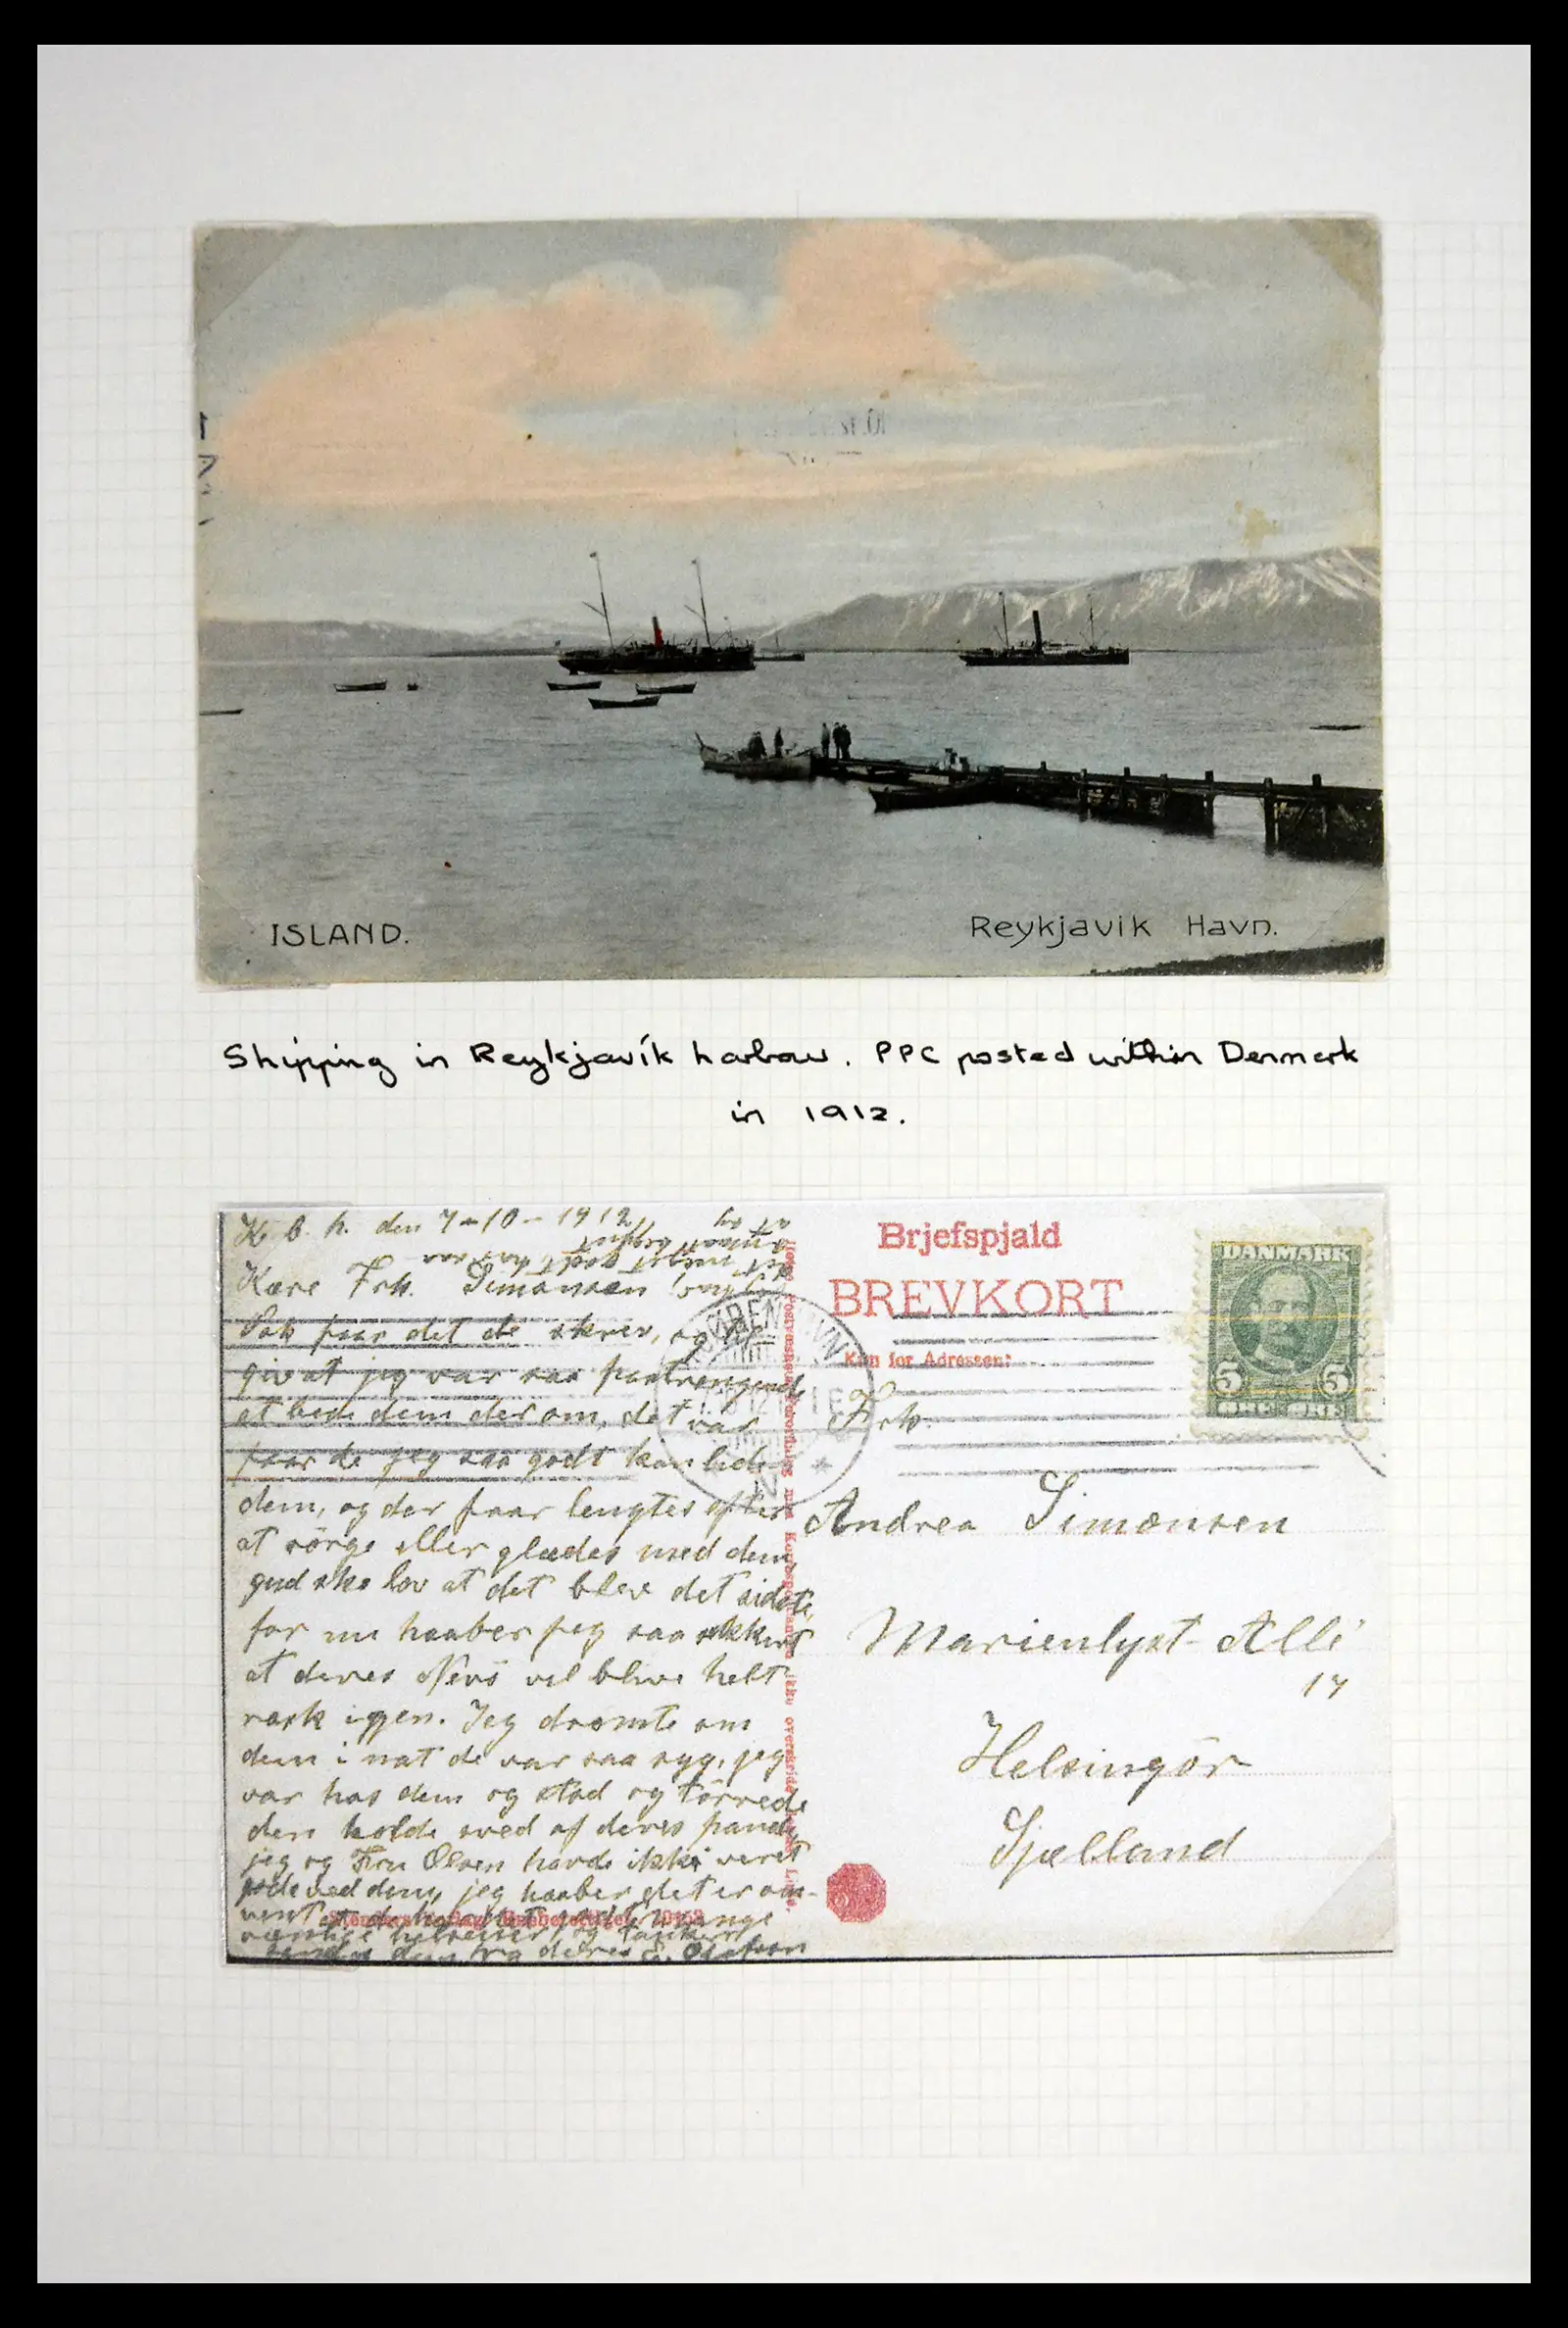 ISLAND.
Reykjavik Havn.
Shipping in Reykjavík harbour. PPC posted within Denmark
in 1912.
K. b. h. den 7-10-1912
Kære Frk. Simonsen
Tak faar det de skrev, og
giv at jeg var saa paatrængende
at bede dem derom, det var
faar de jeg saa godt kan lide
dem, og der faar lengtes efter
at sörge eller glædes med dem,
gud ske lov at det blev det sidste,
for nu haaber jeg saa sikkert
at deres vil blive helt
rask igen. Jeg drømte om
dem i nat de var saa syg, jeg
var hos dem og stod og törrede
den kolde sved af deres pande
jeg og Fru Olsen havde ikke veret
gode ved dem, jeg haaber det er om-
vent
venlige helsener og tanker
sendes dem fra deres E. Olafsson
Brjefspjald
BREVKORT
Kun for Adressen:
DANMARK
5 5
ØRE ØRE
KØBENHAVN
Frk.
Andrea Simonsen
Marienlyst Allé
17
Helsingör
Sjælland